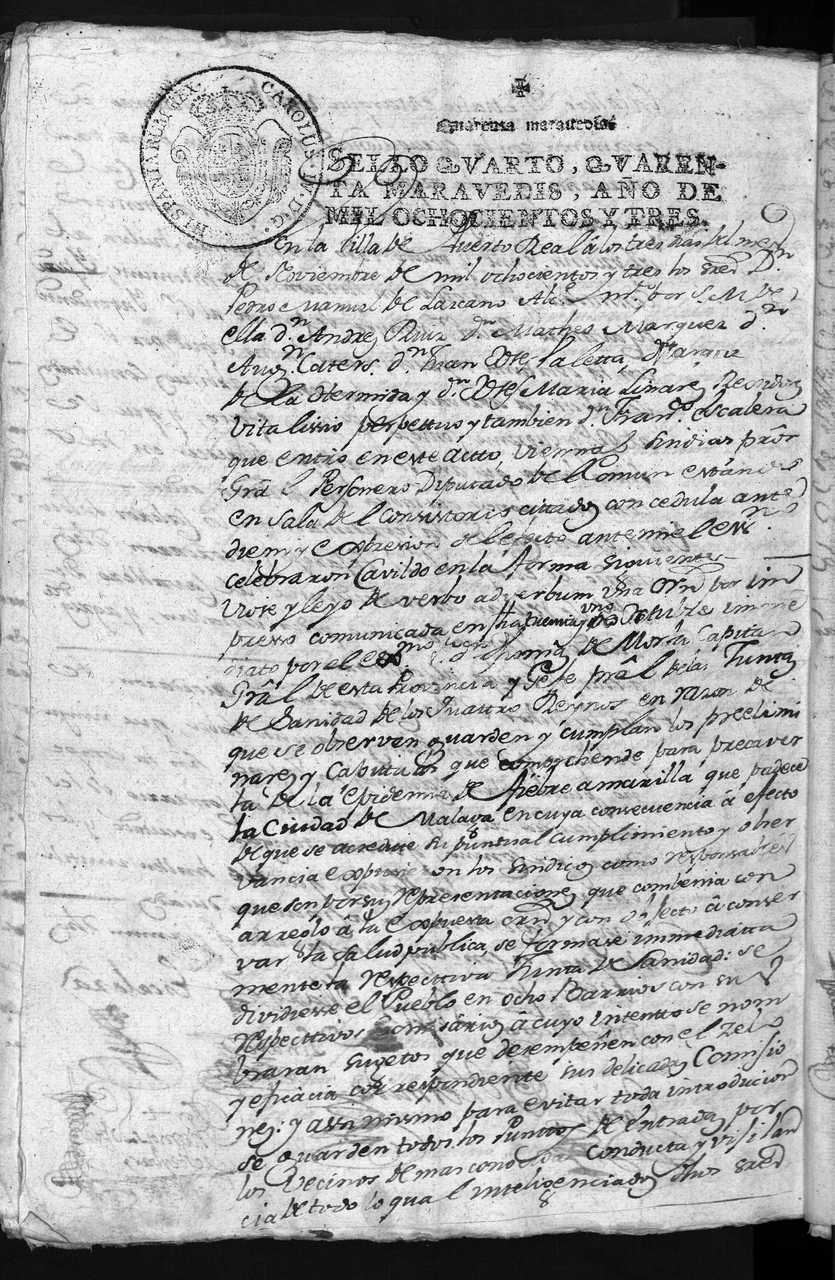 HISPANIARUM REX. CAROLUS IV. D. G.
Quarenta maravedises
SELLO QVARTO, QVAREN-
TA MARAVEDIS, AÑO DE
MIL OCHOCIENTOS Y TRES.
En la Villa de Puerto Real a los tres dias del mes
de Noviembre de mil ochocientos y tres los Sres Dn
Pedro Manuel de Lazcano Alce por S. M. de
ella dn Andres Ruiz dn Matheo Marquez dn
Augn Caters dn Juan Paletta
de la Hermida y dn Maria Linares Regidores
vitalissio perpettuo y tambien dn Franco Escalera
que entro en este actto, Sindico pror
Gral Personero Diputado de Comun estando
en Sala del Consistorio cittados con cedula ante
diem y expresion del efecto ante mi el essno
celebraron Cavildo en la forma siguiente
Viose y leyo de verbo adverbum una orn por im
presso comunicada en treinta y uno Octubre imme
diato por el Exmo Sor de Morla Capitan
Gral de esta Provincia y Gefe pral de las Juntas
de Sanidad de los Quattro Reynos en razon de
que se observen guarden y cumplan los preelimi
nares y Capitulos que comprehende para precaver
la de la epidemia de fiebre amarilla que padece
la Ciudad de Malaga en cuya consecuencia â efecto
de que se acredite su puntual cumplimiento y obser
vancia expusieron los sindicos como responsables
que son por sus representaciones que combenia con
arreglo â la expuesta orn y con objecto â conser
var la salud publica, se formase immediatta
mente la respecttiva Junta de Sanidad: se
dividiesse el Pueblo en ocho Barrios con sus
respecttivos Comisarios â cuyo intentto se nom
braran sugetos que desempeñen con el zelo
y eficacia correspondiente sus delicadas Comisio
nes: y assi mismo para evitar toda introducion
se guarden todos los Punttos de entrada por
los Vecinos de mas conocida conducta y vigilan
cia de todo lo qual inteligenciados dhos Sres